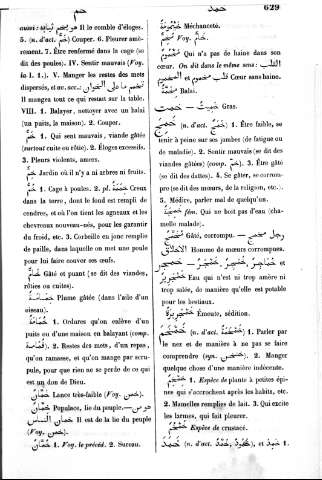 خم
خمد
629
comme: هو يخم ثيابه Il le comble d'éloges.
5. (n. d'act. خَمّ) Couper. 6. Pleurer amè-
rement. 7. Être renfermé dans la cage (se
dit des poules). IV. Sentir mauvais (Voy.
I. 1.). V. Manger les restes des mets
dispersés, et au acc.: تخمم ما على الخوان
Il mangea tout ce qui restait sur la table.
VIII. 1. Balayer, nettoyer avec un balai
(un puits, la maison). 2. Couper.
خَمّ 1. Qui sent mauvais, viande gâtée
(surtout cuite ou rôtie). 2. Éloges excessifs.
3. Pleurs violents, amers.
خُمّ Jardin où il n'y a ni arbres ni fruits.
خُمّ 1. Cage à poules. 2. pl. خممة Creux
dans la terre, dont le fond est rempli de
cendres, et où l'on tient les agneaux et les
chevreaux nouveau-nés, pour les garantir
du froid, etc. 3. Corbeille en jonc remplie
de paille, dans laquelle on met une poule
pour lui faire couver ses œufs.
خامّ Gâté et puant (se dit des viandes,
rôties ou cuites).
خمامة Plume gâtée (dans l'aile d'un
oiseau).
خمامة 1. Ordures qu'on enlève d'un
puits ou d'une maison en balayant (comp.
قمامة). 2. Restes des mets, d'un repas,
qu'on ramasse, et qu'on mange par scru-
pule, pour que rien ne se perde de ce qui
est un don de Dieu.
خمّان Lance très-faible (Voy. خمن).
خمّان Populace, lie du peuple. — هو من
خمان الناس Il est de la lie du peuple
(Voy. خمن).
خمّان 1. Voy. le précéd. 2. Sureau.
Méchanceté.
Voy. خمّ.
مخموم Qui n'a pas de haine dans son
cœur. On dit dans le même sens: مخموم القلب
Cœur sans haine.
مخمّة Balai.
خميت — خمت Gras.
خمج (n. d'act. خمج) 1. Être faible, se
tenir à peine sur ses jambes (de fatigue ou
de maladie). 2. Sentir mauvais (se dit des
viandes gâtées) (comp. خمّ). 3. Être gâté
(se dit des dattes). 4. Se gâter, se corrom-
pre (se dit des mœurs, de la religion, etc.).
5. Médire, parler mal de quelqu'un.
fém. Qui ne boit pas d'eau (cha-
melle malade).
Gâté, corrompu. — رجل مخمج
الاخلاق Homme de mœurs corrompues.
خمجر, خمجرير — خمجر et خماجر
Eau qui n'est ni trop amère ni
trop salée, de manière qu'elle est potable
pour les bestiaux.
خمجريرة Émeute, sédition.
خمخم (n. d'act. خمخمة) 1. Parler par
le nez et de manière à ne pas se faire
comprendre (syn. خنخن). 2. Manger
quelque chose d'une manière indécente.
خمخم 1. Espèce de plante à petites épi-
nes qui s'accrochent après les habits, etc.
2. Mamelles remplies de lait. 3. Qui excite
les larmes, qui fait pleurer.
خمخم Espèce de crustacé.
خمد (n. d'act. خمد, خمود, et خمد 1.